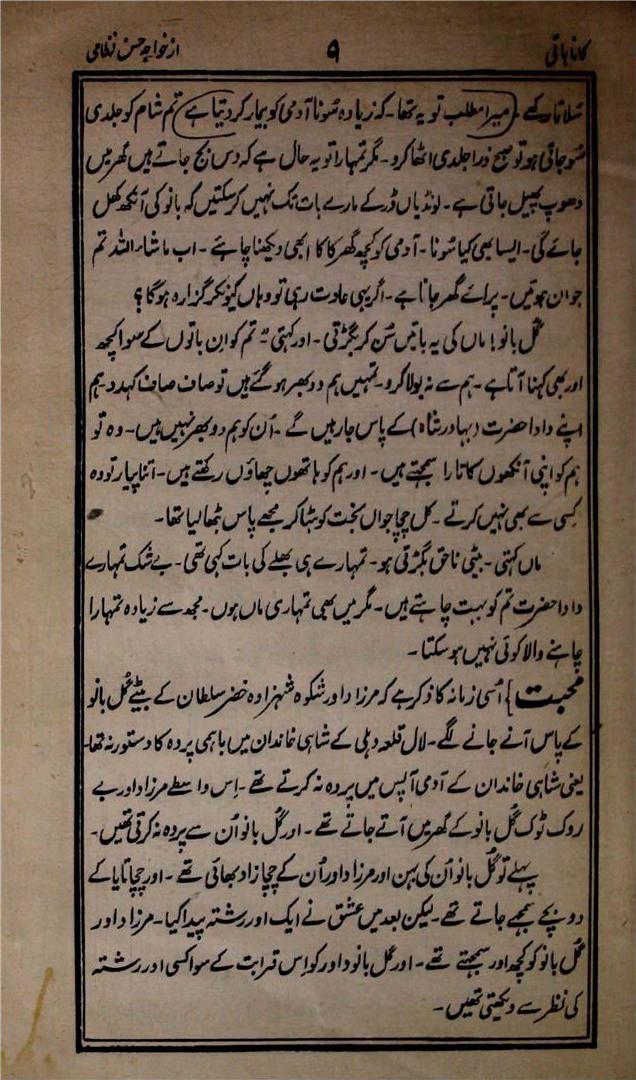 کانا باتی ۹ از خواجہ حسن نظامی
سُلاتا رکھے۔ میرا مطلب تو یہ تھا۔ کہ زیادہ سُونا آدمی کو بیمار کر دیتا ہے تم شام کو جلدی
سُو جاتی ہو تو صبح ذرا جلدی اٹھا کرو۔ مگر تمہارا تو یہ حال ہے کہ دس بج جاتے ہیں گھر میں
دھوپ پھیل جاتی ہے۔ لونڈیاں ڈر کے مارے بات تک نہیں کر سکتیں کہ بانو کی آنکھ کھل
جائے گی۔ ایسا بھی کیا سُونا۔ آدمی کو کچھ گھر کا کا ابھی دیکھنا چاہئے۔ اب ماشاء اللہ تم
جوان ہوئیں۔ پرائے گھر جانا ہے۔ اگر یہی عادت رہی تو وہاں کیونکر گزارہ ہوگا؟
گل بانو! ماں کی یہ باتیں سُن کر بگڑتی۔ اور کہتی۔ تم کو ان باتوں کے سوا کچھ
اور بھی کہنا آتا ہے۔ ہم سے نہ بولا کرو۔ تمہیں ہم دوبھر ہو گئے ہیں تو صاف صاف کہدو۔ ہم
اپنے دادا حضرت (بہادر شاہ) کے پاس جا رہیں گے۔ اُن کو ہم دوبھر نہیں ہیں۔ وہ تو
ہم کو اپنی آنکھوں کا تارا سمجھتے ہیں۔ اور ہم کو ہاتھوں چھاؤں رکھتے ہیں۔ اتنا پیار تو وہ
کسی سے بھی نہیں کرتے۔ کل چچا جواں بخت کو ہٹا کر مجھے پاس بٹھا لیا تھا۔
ماں کہتی۔ بیٹی ناحق بگڑتی ہو۔ تمہارے ہی بھلے کی بات کہی تھی۔ بے شک تمہارے
دادا حضرت تم کو بہت چاہتے ہیں۔ مگر میں بھی تمہاری ماں ہوں۔ مجھ سے زیادہ تمہارا
چاہنے والا کوئی نہیں ہو سکتا۔
محبت} اُسی زمانہ کا ذکر ہے کہ مرزا داور شکوہ شہزادہ خضر سلطان کے بیٹے گُل بانو
کے پاس آنے جانے لگے۔ لال قلعہ دہلی کے شاہی خاندان میں باہمی پردہ کا دستور نہ تھا۔
یعنی شاہی خاندان کے آدمی آپس میں پردہ نہ کرتے تھے۔ اِس واسطے مرزا داور بے
روک ٹوک گُل بانو کے گھر میں آتے جاتے تھے۔ اور گُل بانو اُن سے پردہ نہ کرتی تھیں۔
پہلے تو گُل بانو اُن کی بہن اور مرزا داور اُن کے چچا زاد بھائی تھے۔ اور چچا تایا کے
دو بچے سمجھے جاتے تھے۔ لیکن بعد میں عشق نے ایک اور رشتہ پیدا کیا۔ مرزا داور
گُل بانو کو کچھ اور سمجھتے تھے۔ اور گل بانو داور کو اِس قرابت کے سوا کسی اور رشتہ
کی نظر سے دیکھتی تھیں۔